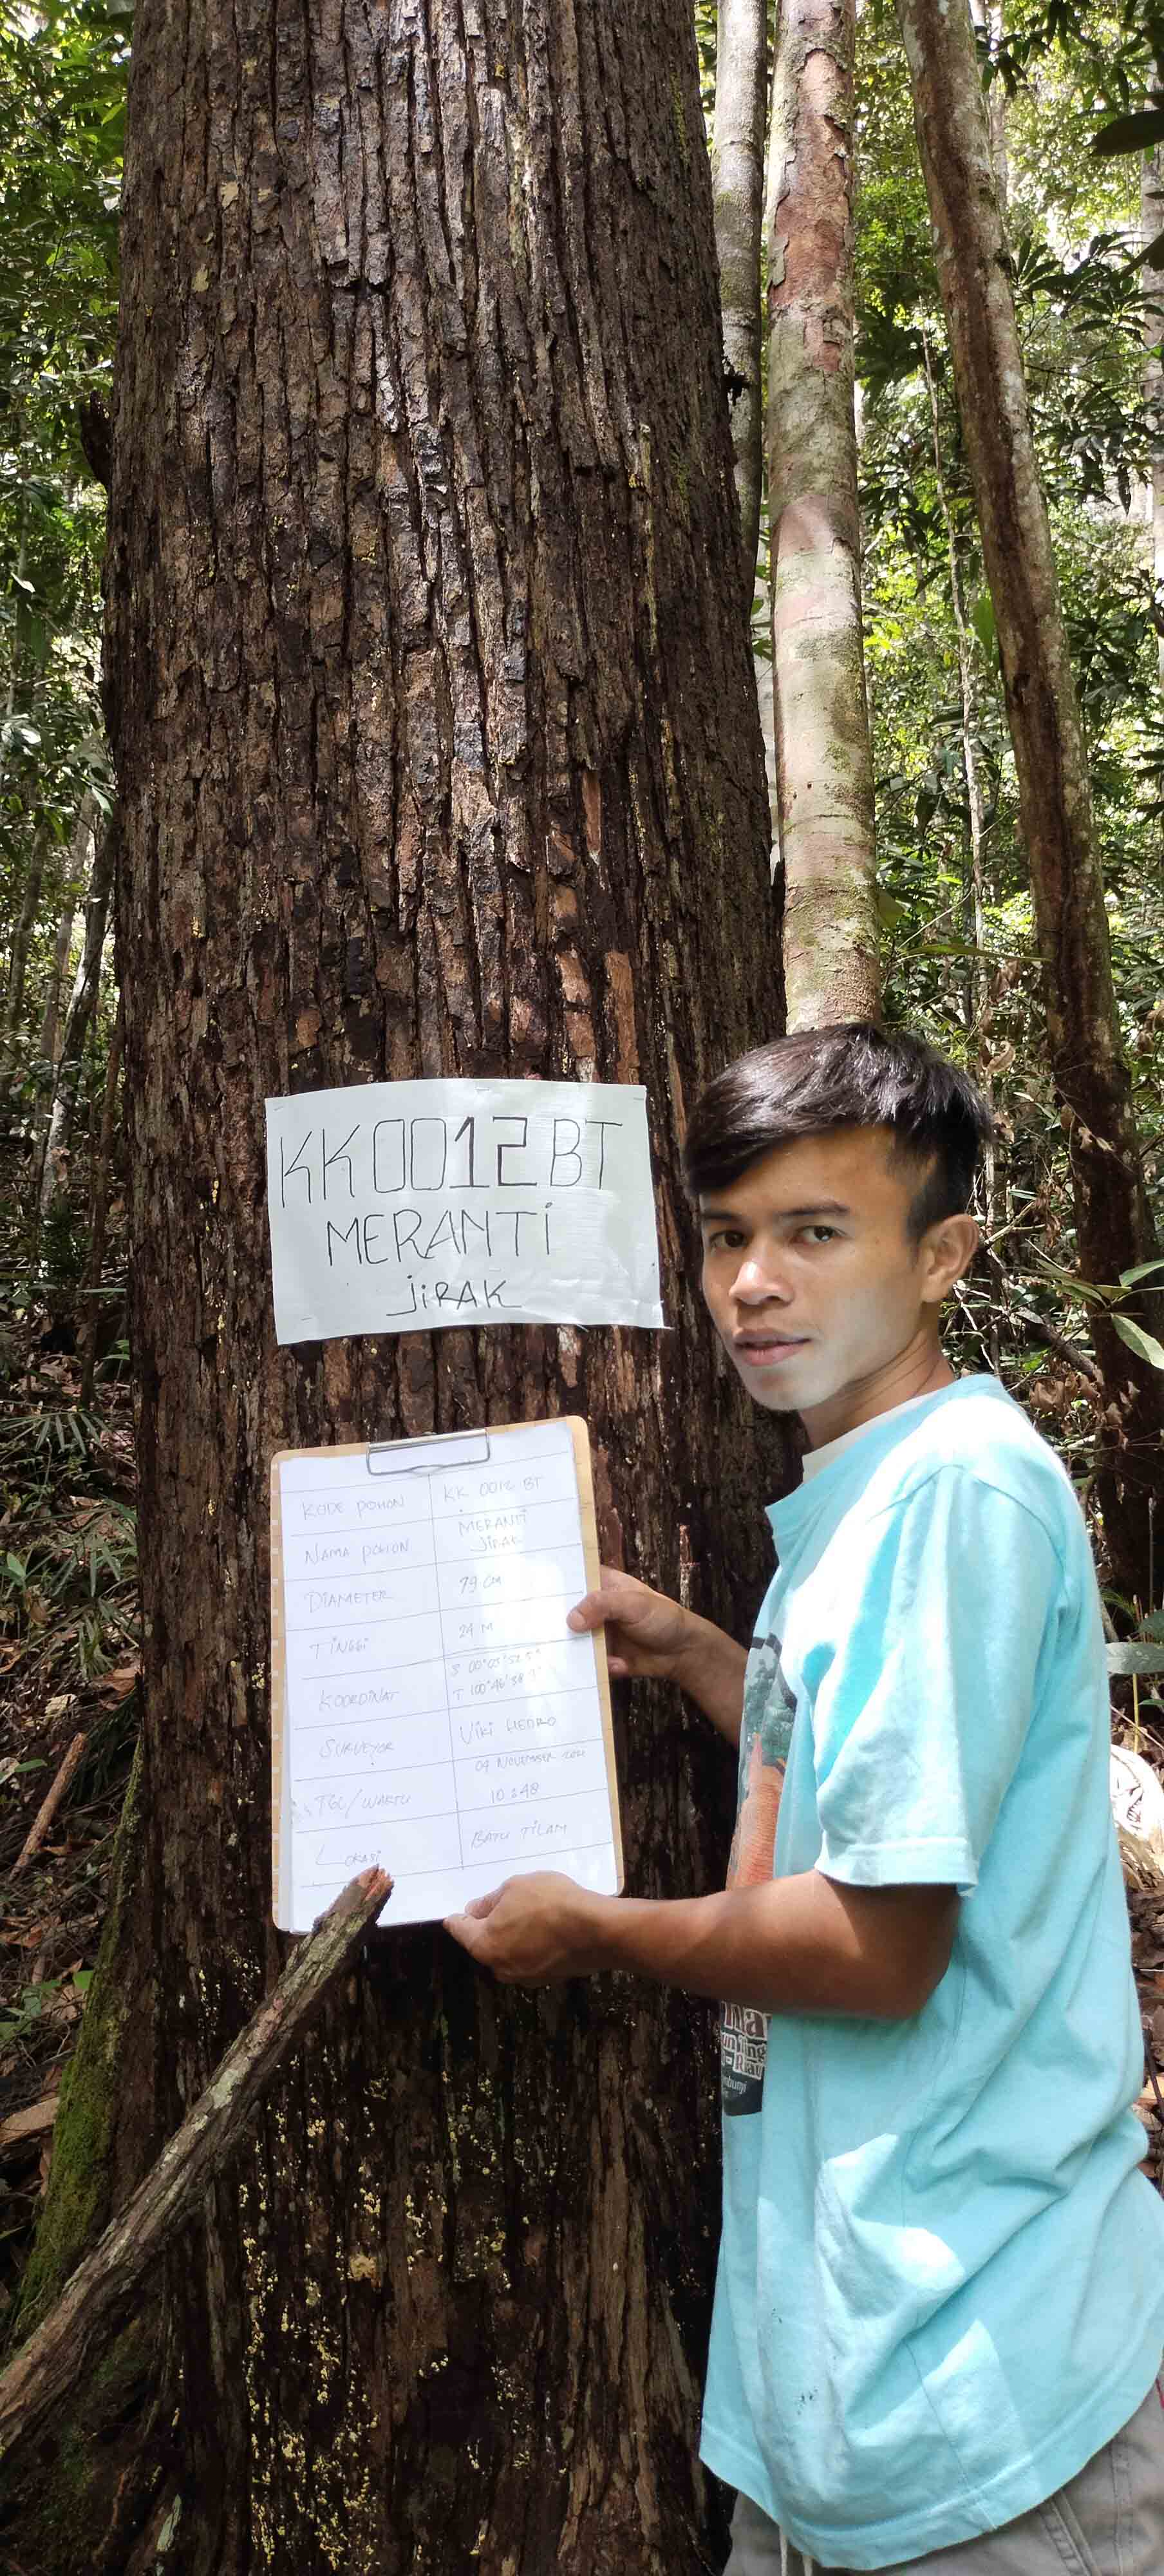 KK0012BT
MERANTi
jiRAK
KODE POHON KK 0012 BT
NAMA POHON MERANTi JiRAK
DiAMETER 79 CM
TiNGGi 24 M
KOORDiNAT S 00°03'52.5"
T 100°46'38
SURVEYOR ViKi HEDRO
TGL/WAKTU 04 NOVEMBER
10:48
LOKASi BATU TiLAM